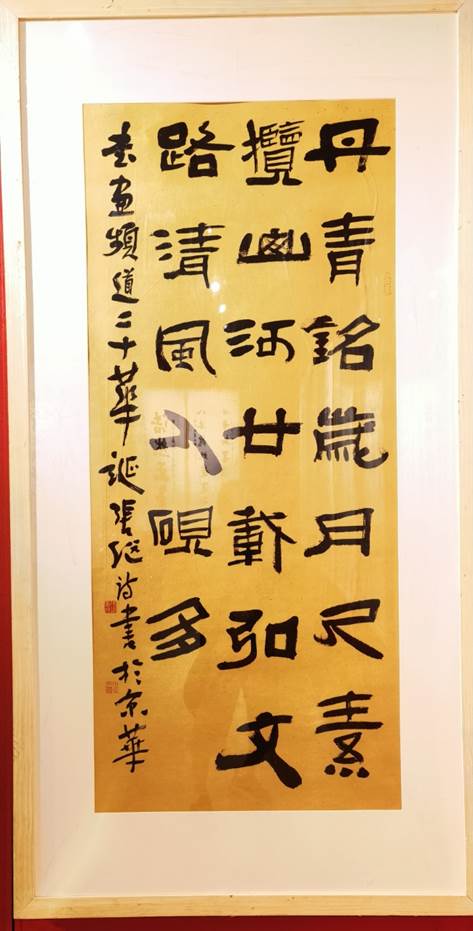 丹青銘歲月尺素
攬山河廿載弘文
路清風入硯多
書畫頻道二十華誕張继诗書於京華